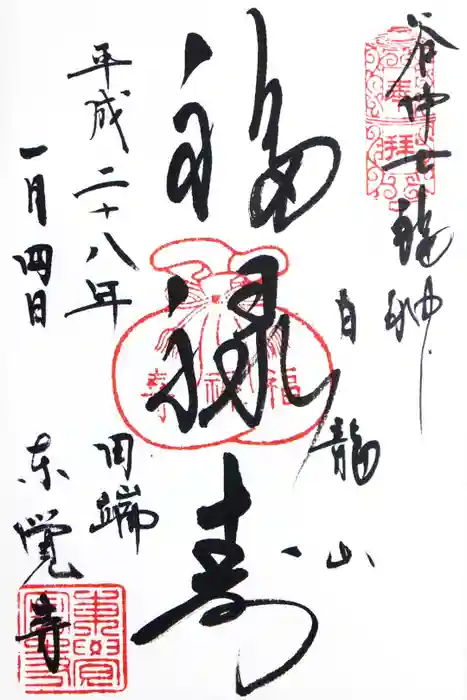 谷中七福神
奉拝
福禄寿
福禄寿
白龍山
平成二十八年
一月四日
田端
東覚寺
東覺寺印